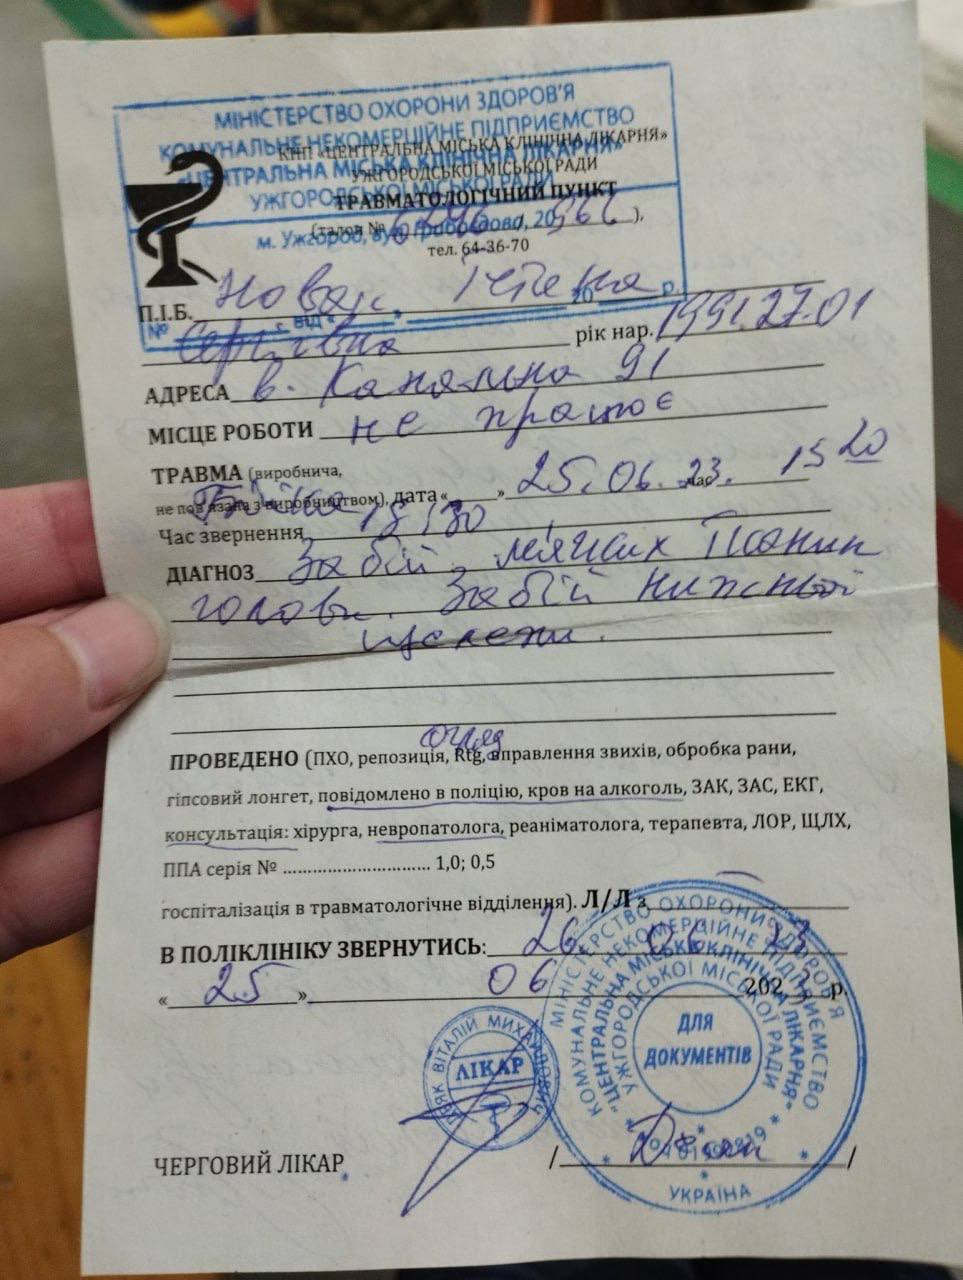 МІНІСТЕРСТВО ОХОРОНИ ЗДОРОВ'Я
КОМУНАЛЬНЕ НЕКОМЕРЦІЙНЕ ПІДПРИЄМСТВО
«ЦЕНТРАЛЬНА МІСЬКА КЛІНІЧНА ЛІКАРНЯ»
УЖГОРОДСЬКОЇ МІСЬКОЇ РАДИ
м. Ужгород, вул. Грибоєдова, 20
№ від « » 20 р.
КНП «ЦЕНТРАЛЬНА МІСЬКА КЛІНІЧНА ЛІКАРНЯ»
УЖГОРОДСЬКОЇ МІСЬКОЇ РАДИ
ТРАВМАТОЛОГІЧНИЙ ПУНКТ
(талон № ),
тел. 64-36-70
П.І.Б. Новак
Сергіївна рік нар. 1991.27.01
АДРЕСА в. Канальна 91
МІСЦЕ РОБОТИ не працює
ТРАВМА (виробнича,
не пов'язана з виробництвом), дата « » 25.06.23. час 15 20
Час звернення 18 30
ДІАГНОЗ Забій м'яких тканин
голови. Забій нижньої
щелепи.
огляд
ПРОВЕДЕНО (ПХО, репозиція, Rtg, вправлення звихів, обробка рани,
гіпсовий лонгет, повідомлено в поліцію, кров на алкоголь, ЗАК, ЗАС, ЕКГ,
консультація: хірурга, невропатолога, реаніматолога, терапевта, ЛОР, ЩЛХ,
ППА серія № .............................. 1,0; 0,5
госпіталізація в травматологічне відділення). Л/Л з
В ПОЛІКЛІНІКУ ЗВЕРНУТИСЬ: 26 06 23
« 25 » 06 2023 р.
ВІТАЛІЙ МИХАЙЛОВИЧ
ЛІКАР
МІНІСТЕРСТВО ОХОРОНИ ЗДОРОВ'Я
КОМУНАЛЬНЕ НЕКОМЕРЦІЙНЕ ПІДПРИЄМСТВО
"ЦЕНТРАЛЬНА МІСЬКА КЛІНІЧНА ЛІКАРНЯ"
УЖГОРОДСЬКОЇ МІСЬКОЇ РАДИ
ДЛЯ
ДОКУМЕНТІВ
УКРАЇНА
ЧЕРГОВИЙ ЛІКАР / /